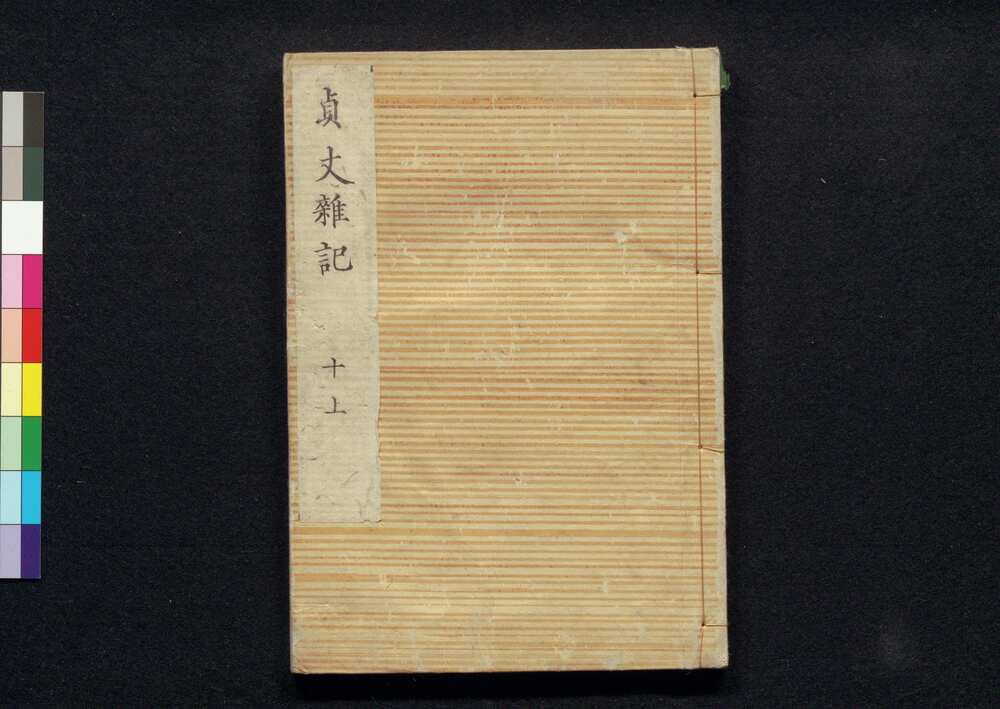 貞丈雜記
十上